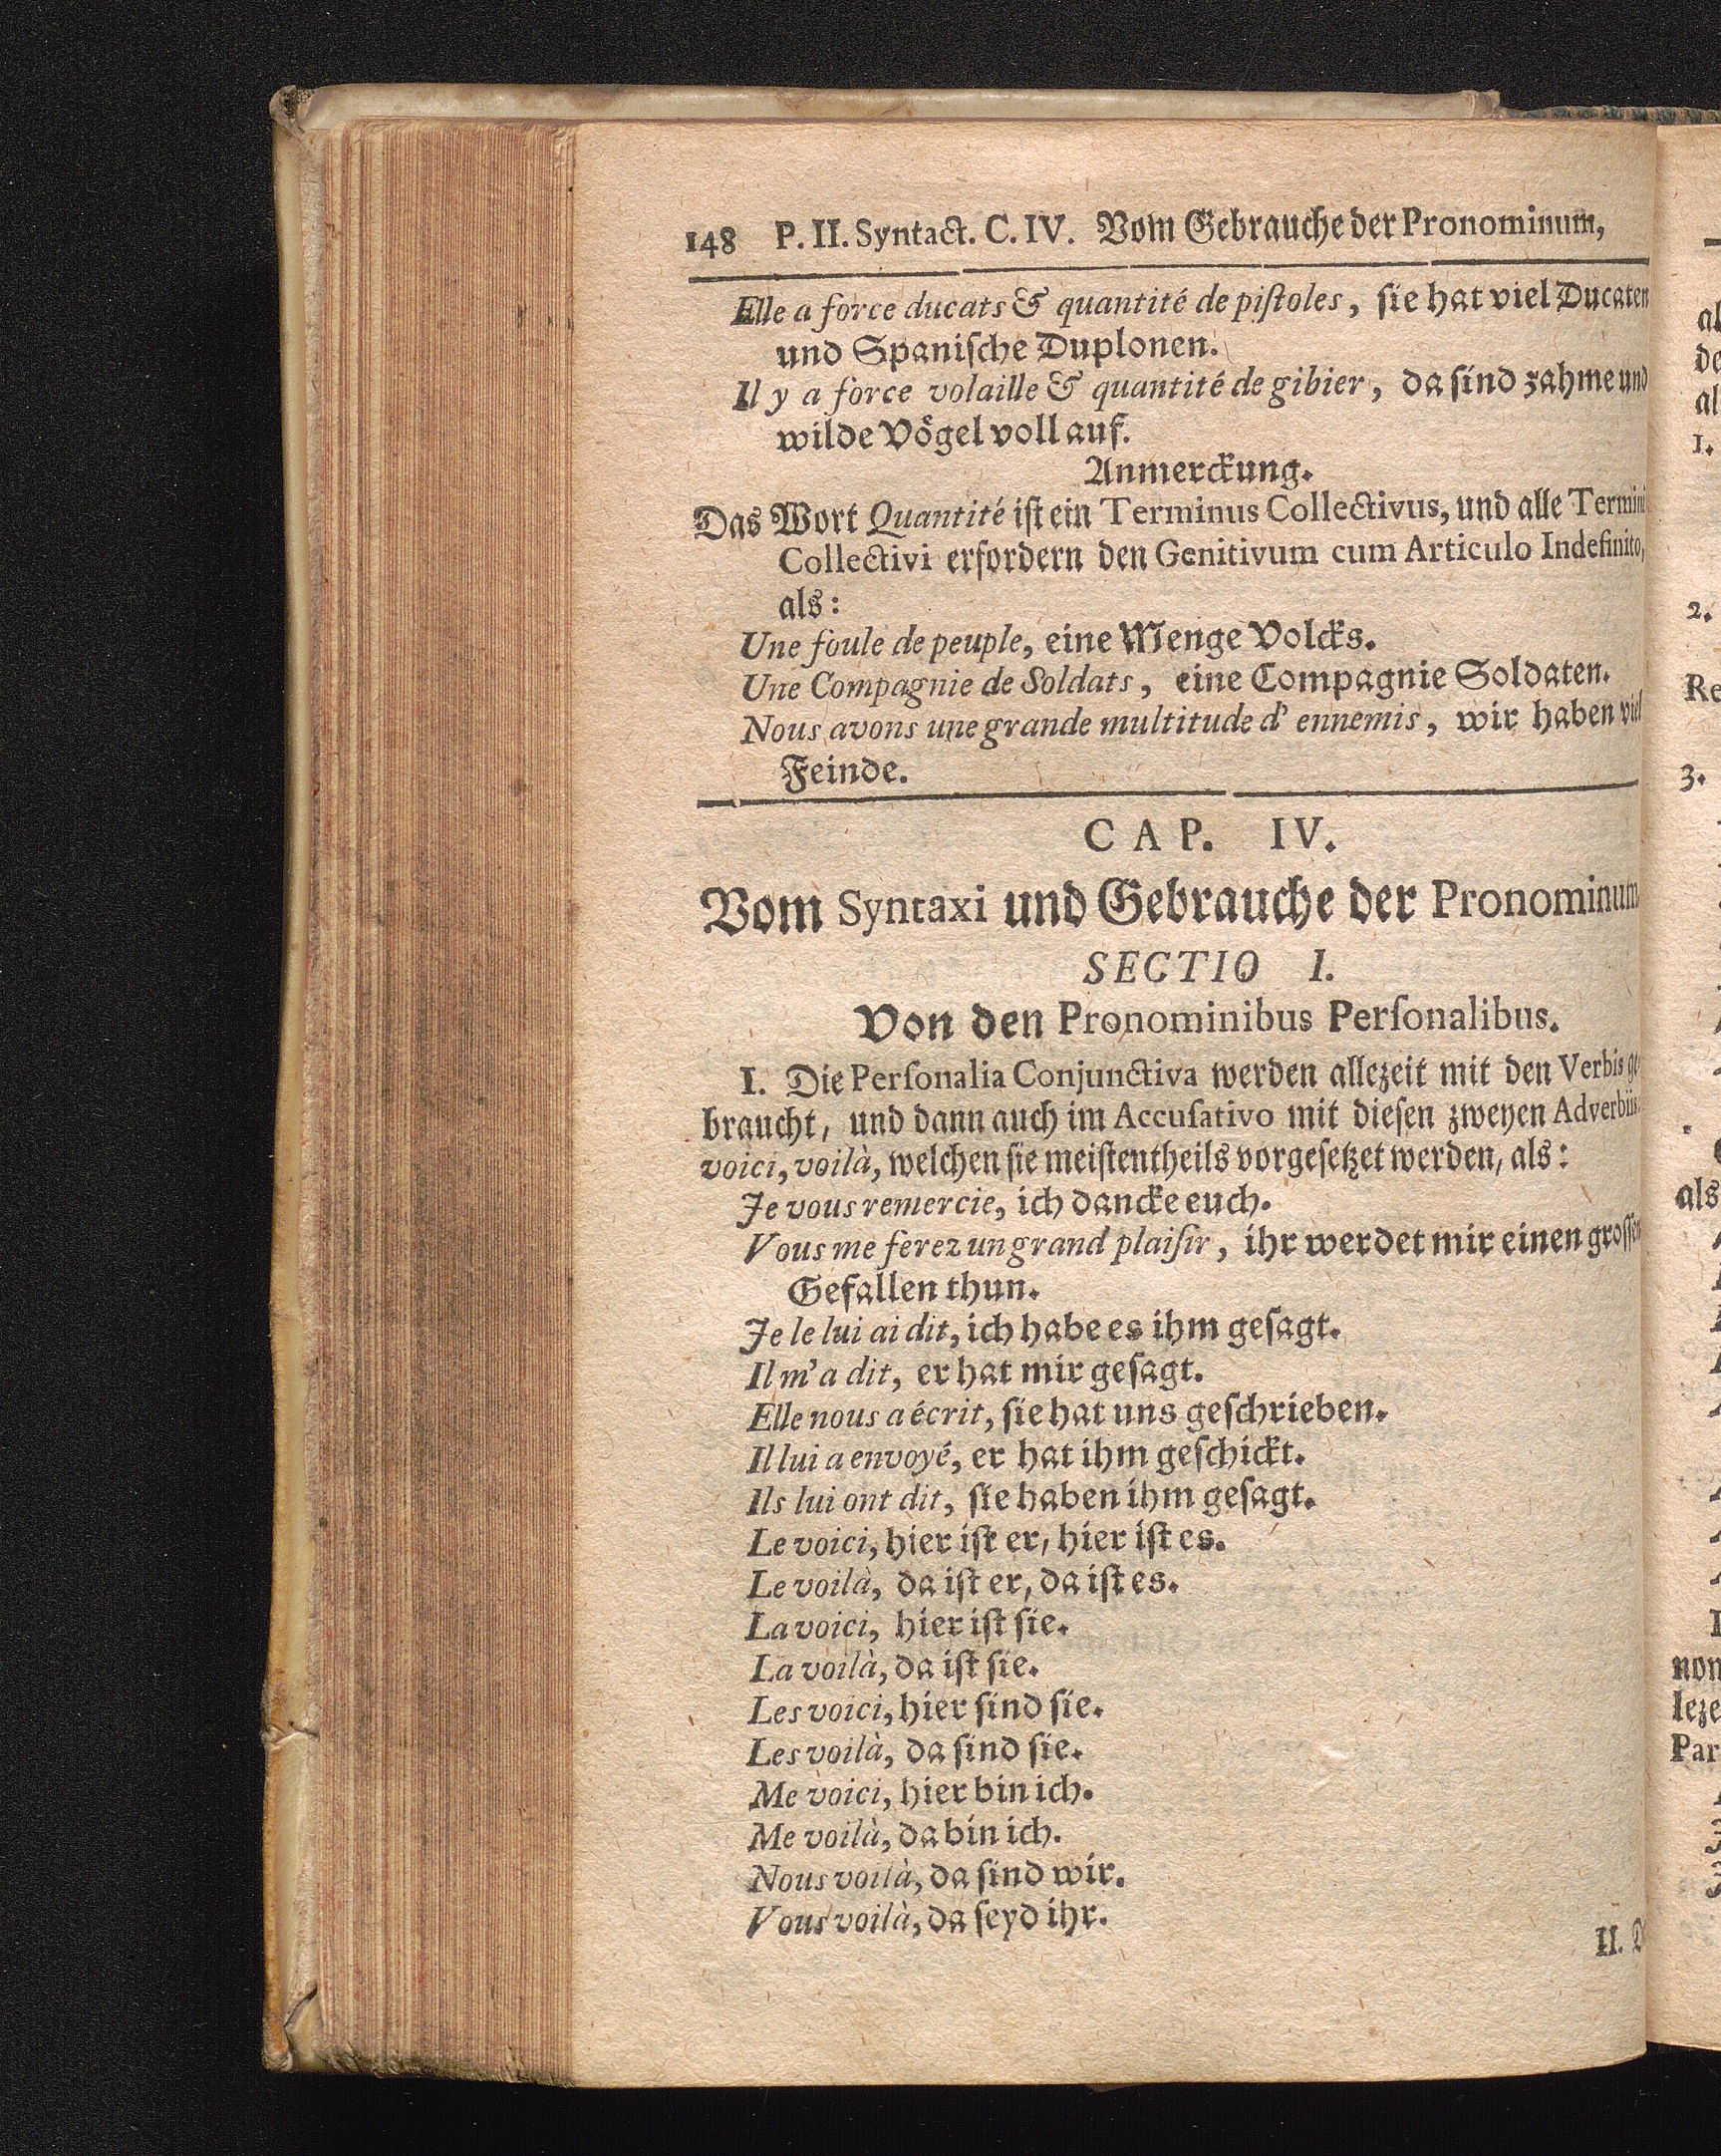 148 P. II. Syntact. C. IV. Vom Gebrauche der Pronominum,
Elle a force ducats & quantité de piſtoles, ſie hat viel Ducaten
und Spaniſche Duplonen.
Il y a force volaille & quantité de gibier, da ſind zahme und
wilde Vögel voll auf.
Anmerckung.
Das Wort Quantité iſt ein Terminus Collectivus, und alle Termini
Collectivi erfordern den Genitivum cum Articulo Indefinito,
als:
Une foule de peuple, eine Menge Volcks.
Une Compagnie de Soldats, eine Compagnie Soldaten.
Nous avons une grande multitude d' ennemis, wir haben viel
Feinde.
CAP. IV.
Vom Syntaxi und Gebrauche der Pronominum.
SECTIO I.
Von den Pronominibus Perſonalibus.
I. Die Perſonalia Conjunctiva werden allezeit mit den Verbis ge-
braucht, und dann auch im Accuſativo mit dieſen zweyen Adverbiis:
voici, voilà, welchen ſie meiſtentheils vorgeſetzet werden, als:
Je vous remercie, ich dancke euch.
Vous me ferez un grand plaiſir, ihr werdet mir einen groſſen
Gefallen thun.
Je le lui ai dit, ich habe es ihm geſagt.
Il m'a dit, er hat mir geſagt.
Elle nous a écrit, ſie hat uns geſchrieben.
Il lui a envoyé, er hat ihm geſchickt.
Ils lui ont dit, ſie haben ihm geſagt.
Le voici, hier iſt er, hier iſt es.
Le voilà, da iſt er, da iſt es.
La voici, hier iſt ſie.
La voilà, da iſt ſie.
Les voici, hier ſind ſie.
Les voilà, da ſind ſie.
Me voici, hier bin ich.
Me voilà, da bin ich.
Nous voilà, da ſind wir.
Vous voilà, da ſeyd ihr.
II.
1.
2.
3.
als